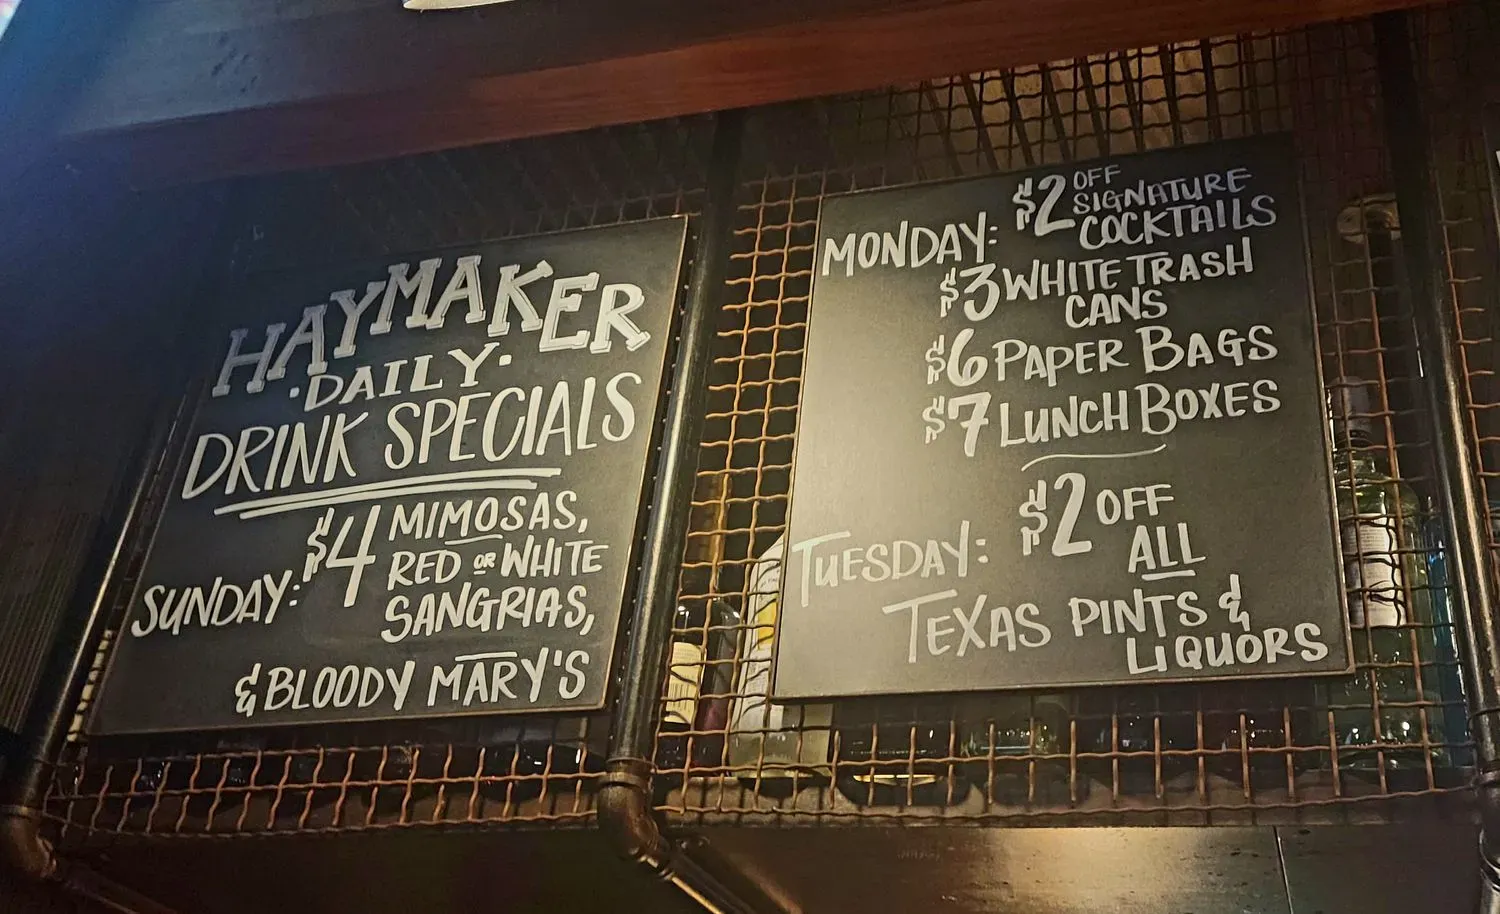 HAYMAKER
·DAILY·
DRINK SPECIALS
SUNDAY: $4 MIMOSAS,
RED OR WHITE
SANGRIAS,
& BLOODY MARY'S
MONDAY: $2 OFF
SIGNATURE
COCKTAILS
$3 WHITE TRASH
CANS
$6 PAPER BAGS
$7 LUNCH BOXES
TUESDAY: $2 OFF
ALL
TEXAS PINTS &
LIQUORS